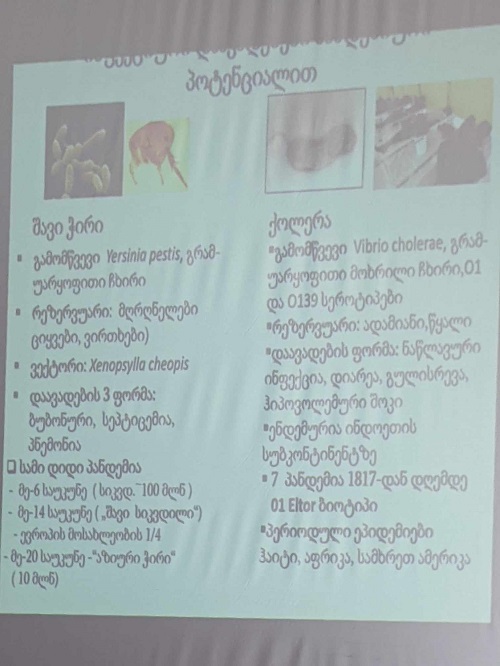 პოტენციალით
შავი ჭირი
▪ გამომწვევი Yersinia pestis, გრამ-
უარყოფითი ჩხირი
▪ რეზერვუარი: მღრღნელები
ციყვები, ვირთხები)
▪ ვექტორი: Xenopsylla cheopis
▪ დაავადების 3 ფორმა:
ბუბონური, სეპტიცემია,
პნემონია
❑ სამი დიდი პანდემია
- მე-6 საუკუნე ( სიკვდ.~100 მლნ )
- მე-14 საუკუნე ( „შავი სიკვდილი“)
- ევროპის მოსახლეობის 1/4
- მე-20 საუკუნე -“აზიური ჭირი“
( 10 მლნ)
ქოლერა
▪გამომწვევი Vibrio cholerae, გრამ-
უარყოფითი მოხრილი ჩხირი,O1
და O139 სეროტიპები
▪რეზერვუარი: ადამიანი,წყალი
▪დაავადების ფორმა: ნაწლავური
ინფექცია, დიარეა, გულისრევა,
ჰიპოვოლემური შოკი
▪ენდემურია ინდოეთის
სუბკონტინენტზე
▪ 7 პანდემია 1817-დან დღემდე
01 Eltor ბიოტიპი
▪პერიოდული ეპიდემიები
ჰაიტი, აფრიკა, სამხრეთ ამერიკა